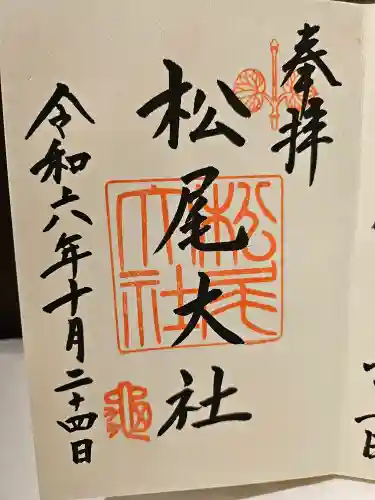 奉拝
松尾大社
松尾大社
令和六年十月二十四日